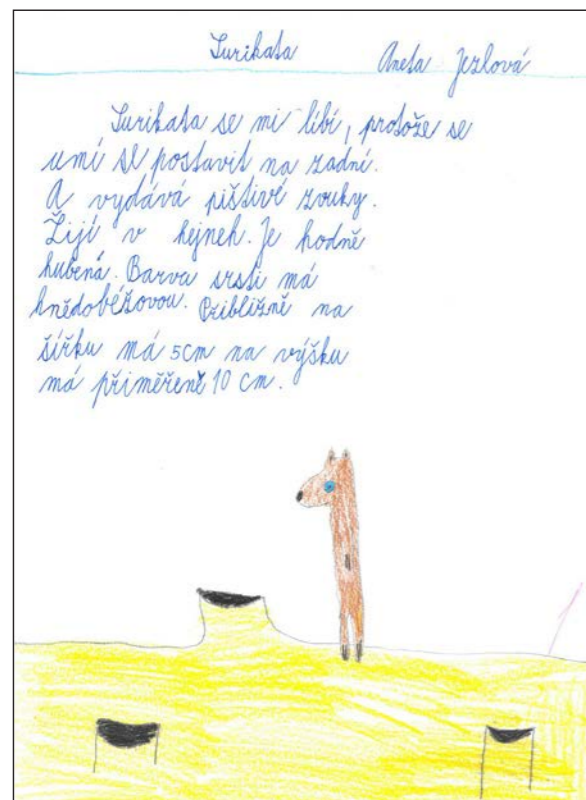 Surikata Aneta Jezlová
Surikata se mi líbí, protože se
umí se postavit na zadní.
A vydává pištivé zvuky.
Žijí v hejneh. Je hodně
hubená. Barvu srsti má
hnědobéžovou. Přibližně na
šířku má 5cm na výšku
má přiměřeně 10 cm.